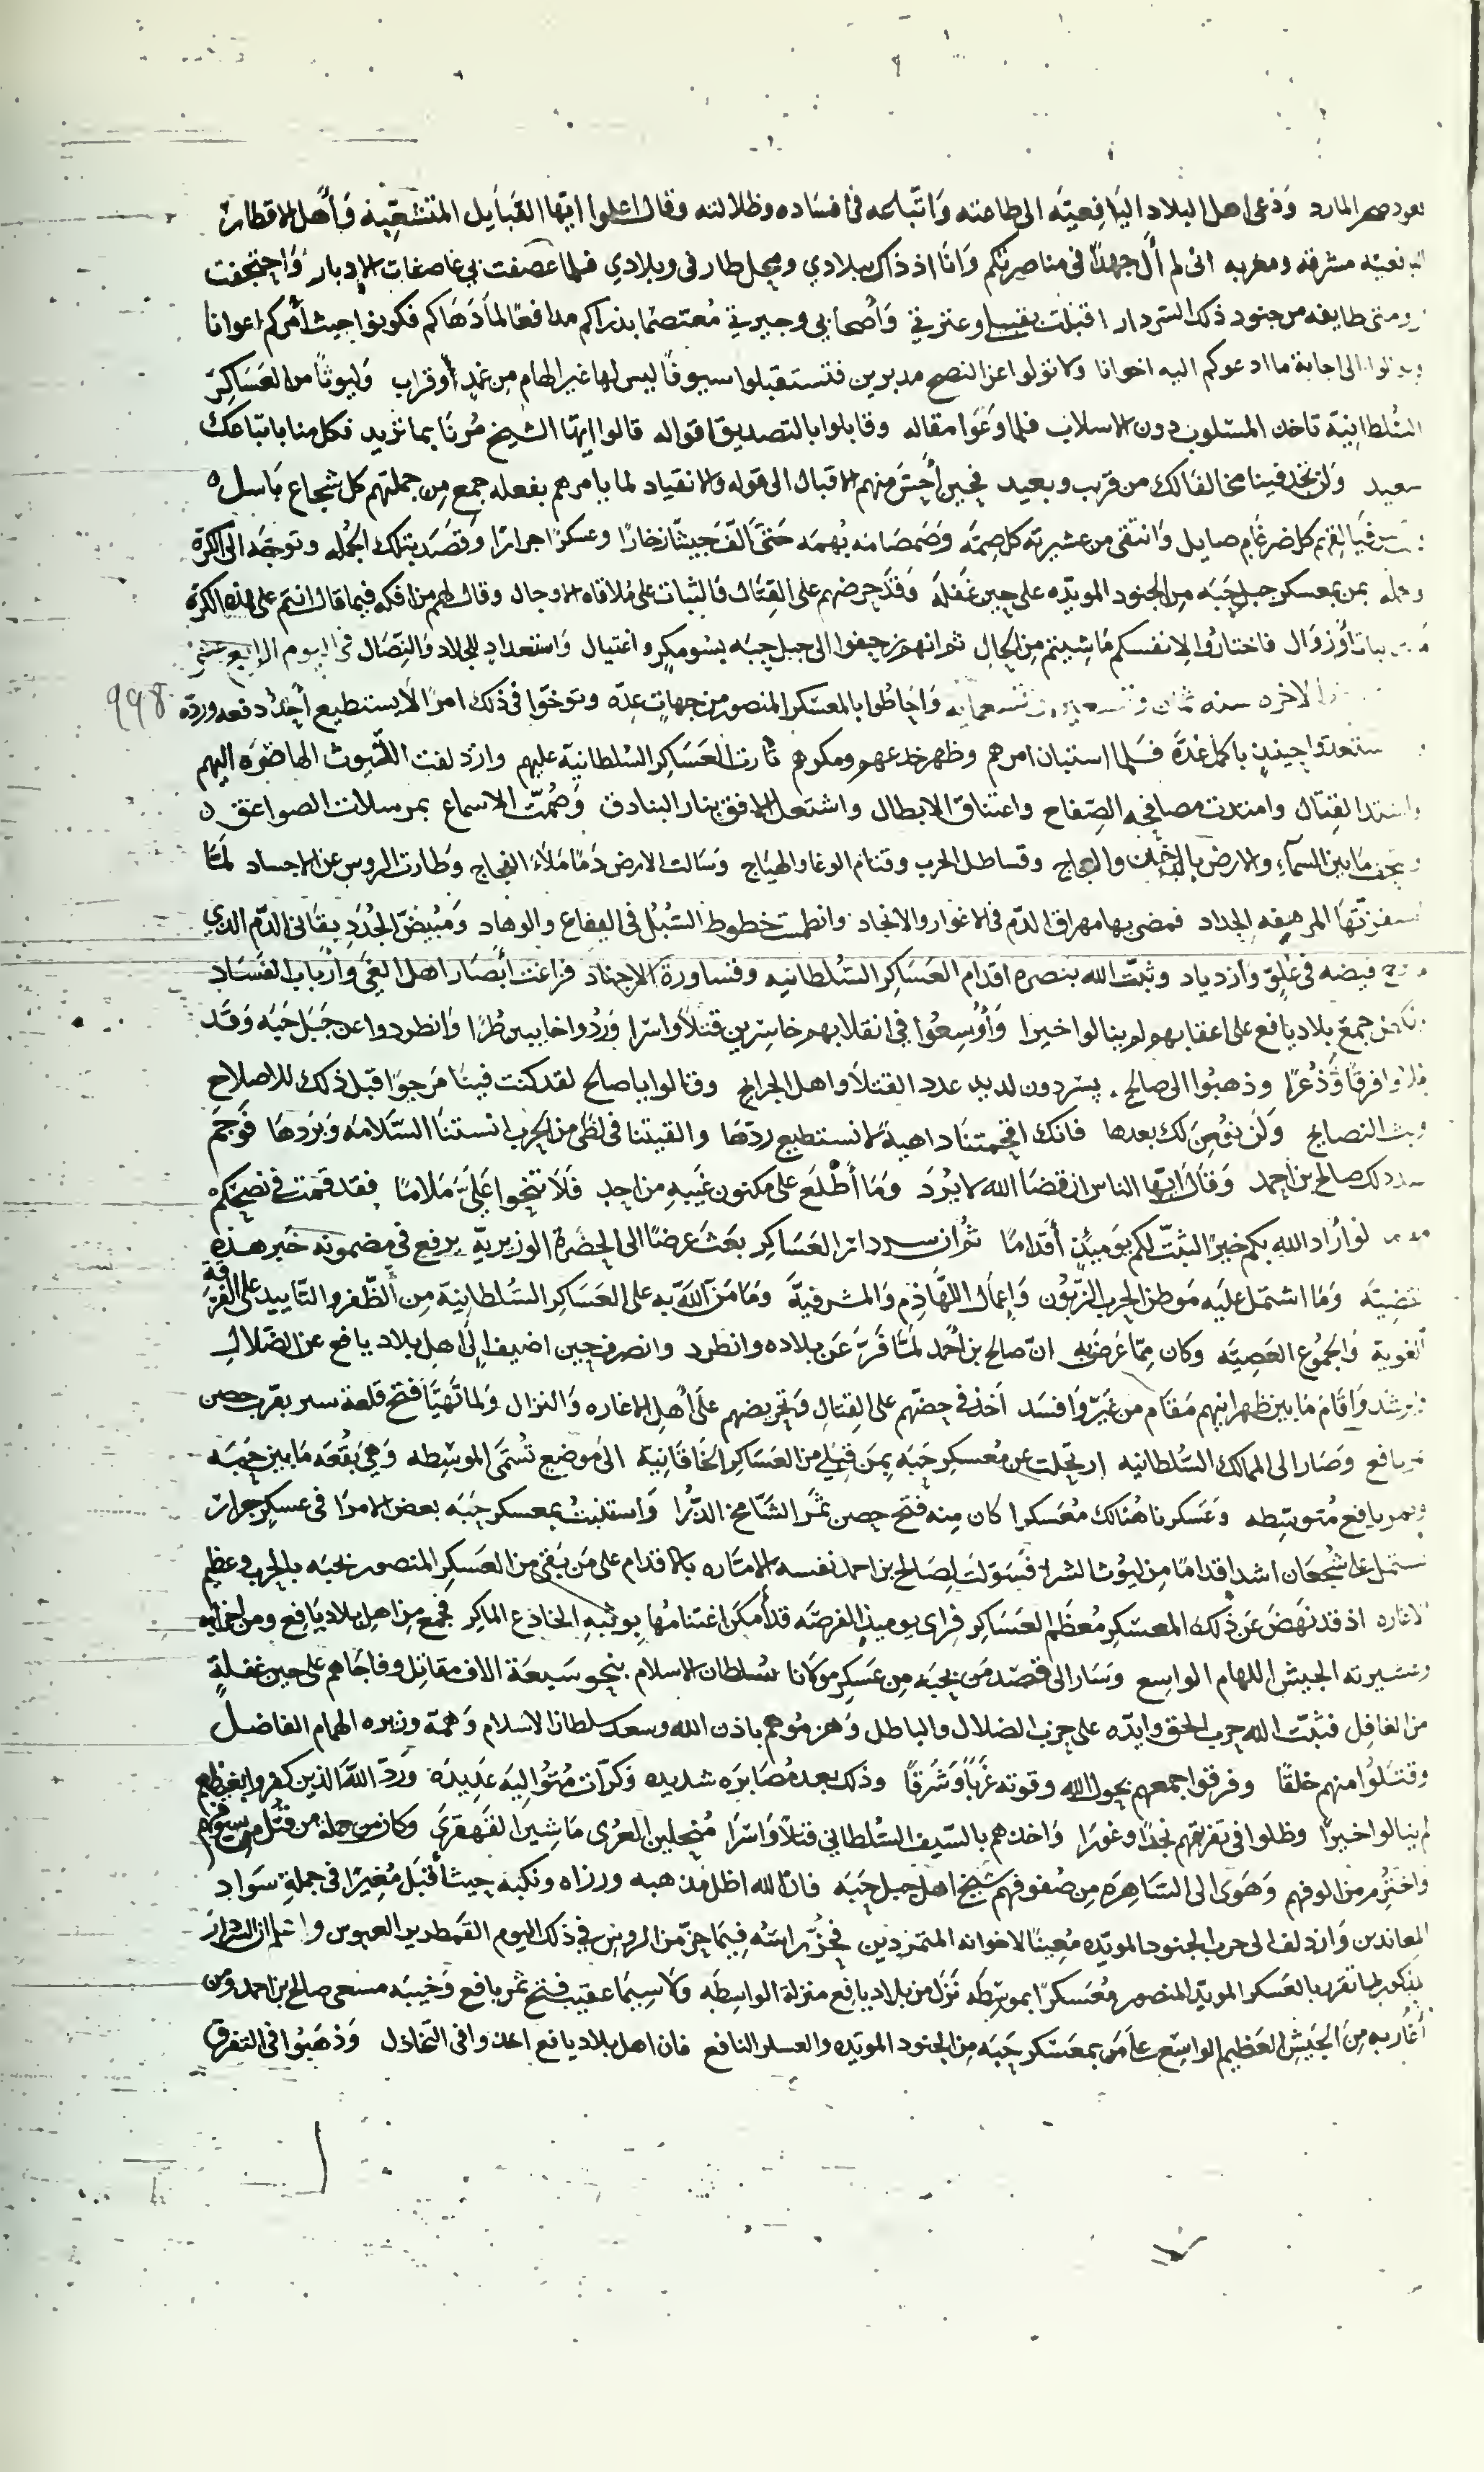 المارد وَدَعى اهل البلاد اليَافِعيّه الى طاعته وَاتّباعه فى افسَاده وظلالته وقال اعلموا ايّها القبَايل المتشعّبِه وَأهل الاقطار
مشرقه ومغربه انى لم أل جهدًا فى مناصرتكم وَانَا اذ ذاك ببلادي ومحل طارفى وتلادي فلما عصفت بي عاصفات الادبار وَاجتحفت
طايفه من جنود ذلك السّردار اقبلت بنفسي وعترتي وَأصحابي وجيرتي مُعتصمًا بذراكم مدافعًا لمَا دَهَاكم فكونوا حيث أمركم اعوانا
الى اجابة ما ادعوكم اليه اخوانا ولا تولوا عن النصح مدبرين فتستقبلوا سيوفًا ليس لها غير الهام من غمدٍ أوقراب وَليوثًا من العَسَاكِر
السُّلطانيّة تاخذ المسلوب دون الاسلاب فلما وَعَوا مقاله وقابلوا بالتصديق اقواله قالوا ايّها الشيخ مُرنَا بما تريد فكل منا باتباعك
سعيد وَلن تجد فينا مخالفًا لك من قريب وبعيد فحين أحسّ منهم الاقبال الى قوله والانقياد لما يامرهم بفعله جمع مِن جملتهم كل شجاع باسل
كل ضرغام صايل وَانتقى من عشيرته كل صمّه وَصَمصَامه بُهمَه حَتى ألّف جيشًا زخارًا وعسكرًا جرارًا وَقصَد بتلك الجُمله وتوجّه الى الكرّة
بمن بمعسكر جبل حَبَه مِن الجنود المويّده على حين غفلَه وَقد حرضهم على القِتال والثبات على مُلاقاه الاوجال وقال لهم من افكه فيما قال انتم على هذه الكرّة
أو زوَال فاختارُوا لانفسكم مَا شيتم مِن الحال ثم انهم زحفوا الى جبل حبَه بسُو مكرٍ واغتيال وَاستعدادٍ للجلاد وَالنّضَال فى اليوم الرابع عشر
الاخره سنه ثمان وتسعين وتسعمايه وَاحَاطُوا بالمعسَكر المنصور من جهاتٍ عدّه وتوخّوا فى ذلك امرًا لا يستطيع أحدٌ دفعه وردّه
998
حينيذٍ باكمل عُدَّه فـَلما استبان امرهم وظهر خداعهم ومكرهم ثارت العَسَاكر السُلطانيّة عليهم وازدلفت اللّيوث الهاصَره اليهم
القِتال وامتدت مصافحه الصِّفاح واعتناق الابطال واشتعل الافق بنار البنادق وَصُمّت الاسماع بمرسلات الصواعق
مَا بين السماءِ والارض بالدّخان والعجاج وقساطل الحرب وقتام الوغا والهيَاج وَسَالت الارض دَمًا مَلأ الفجاج وَطارت الروس عن الاجساد لمَّا
المرهفه الحِداد فمضى بها مهراق الدّم فى الاغوار والانجاد وانطمست خطوط السّبُل فى البقاع والوهاد وَمُبيضّ الجُدَد بقانى الدّم الذي
فيضه فى علوّ وَازدياد وثبّت الله بنصره اقدام العَسَاكر السّلطانيه وقساورة الاجناد فزاغت أبصَار اهل البغي وَأرباب الفسَاد
جمع بلاد يافع على اعقابهم لم ينالوا خيرا وَأوُسِعُوا فى انقلابهم خاسرين قتلاً واسرًا وَرُدّوا خايبين طُرًّا وَانطردوا عن جَبل حَبَه وَقد
فرقًا وذُعرًا وذهبُوا الى صالح يسردون لديه عدد القتلا واهل الجرايح وقالوا يا صالح لقد كنت فينَا مَرجوّا قبل ذلك للاصلاح
وبث النصايح وَلن نؤمن لك بعدها فانك اقحمتنَا داهيةً لا نستطيع ردّهَا والقيتنا فى لظًى من الحرب انستنَا السَّلامَه وَبَردَهَا فوَجَمَ
لذلك صالح بن احمد وَقال ايّها الناس ان قضَا الله لا يُرَد وَمَا أطلع على مكنون غيبهِ من احد فلاَ تنحوا عَليّ مَلامًا فقد قمت فى نصحكم
لو أرَاد الله بكم خيرًا لثبّت لكم يوميذٍ أقدامًا ثمّ ان سردار العَسَاكر بعَث عَرضًا الى الحضَرة الوزيريّه يرفع فى مضمونه خبر هذه
القضيّه وَمَا اشتمل عليه مَوطن الحرب الزّبُون وَإعمال اللهَاذِم وَالمشرفيّة وَمَا مَنّ الله به على العسَاكر السّلطانيّة من الظّفر والتّاييد على الفرقة
الغوية وَالجمُوع العَصِيّه وكان مِمّا عَرَض به انّ صالح بن احمد لمّا فرّ عَن بلاده وانطرد وانصرف حين اضيف الى اهل بلاد يافع عن الضّلال
وَاقَامَ مَا بين ظهرانيهم مَقام من غيرّ وَافسَد اخذ فى حضّهم على القِتال وَتحريضهم على أهل الاغاره وَالنزال ولما تهيّأ فتح قلعة سر بقرب حصن
يافع وَصَار الى الممالك السّلطانيه ارتحلت من مُعسكر حَبَه بمَن قبلي من العَسَاكر الخاقَانيَة الى مَوضعٍ تُسمّى الموسّطه وَهي بُقعَه مَا بين حَبَه
وثمر يافع مُتوسّطه وَعَسكرنا هُنالك مُعَسكرا كان مِنه فتح حِصن ثمَر الشّامخ الذّرا وَاستنبتُ بمعسكر حبَه بعض الامرا فى عسكرٍ جرار
يشتمل على شُجعَان اشد اقدامًا مِن ليُوث الشرا فسَوّلت لِصَالح بن احمد نفسه الامّاره بالاقدام على مَن بَقى من العَسكر المنصور بحَبَه بالحرب وعظيم
الاغاره اذ قد نهَض عَن ذلك المعسكر مُعظم العَسَاكر فراى يوميذٍ الفرصَه قد أمكن اغتنامُهَا بوثبه الخادع الماكر فجمع مِن اهل بلاد يافع ومن احزابه
وعشيرته الجيش اللهام الواسع وَسَار الى قصد مَن بحَبَه مِن عَسكر مولانا سُلطان الاسلام بنحو سَبعَة الاف مقاتل وفاجَاهم على حين غفلةٍ
من الغافل فثبّت الله حزب الحق وايدّه على حزب الضلال والباطل وَهزمُوهم باذن الله وسعد سلطان الاسلام وَهمة وزيره الهمام الفاضل
وقتلُوا منهم خلقًا وفرقوا جمعهم بحول الله وقوته غربًا وَشرقًا وذلك بعد مُصَابرَه شديده وَكرّات مُتوَاليَه عَديده وَردّ الله الذين كفروا بغيظهم
لم ينالوا خيرًا وظلوا فى تفرّقهم نجدًا وغورَا وَاخذهم بالسّيف السُّلطاني قتلاً وَاسْرًا مُنحلين العُرى مَاشين القهقرى وكان من جمله من قُتل من
واختُرم من الوفهم وَهَوى الى السّاهِرَه مِن صُفوفهم شيخ اهل جبل حَبَه فان الله اظل مذهبه ورزاه ونكبه حيث أقبل مُغيرًا فى جملة سَواد
المعاندين وَازدلف الى حرب الجنود المويّده مُعِينًا لاخوانه المتمرّدين فحُزّ راسُه فيمَا حزّ من الروس فى ذلك اليوم القمطرير العبوس
تقرر بالعَسكر المويّد المنصور مُعَسكرًا بموسّطه نَزَل من بلاد يافع منزلة الواسطه وَلا سيّما عقيب فتح ثمر يافع وَخيبه مسعى صالح بن احمد وَمَن
أغار به مِن الجَيش العَظيم الواسِع على مَن بمعَسكر حَبَه مِن الجنود المويّده فان اهل بلاد يافع اخذوا فى التخاذل وَذهَبُوا فى التفرق